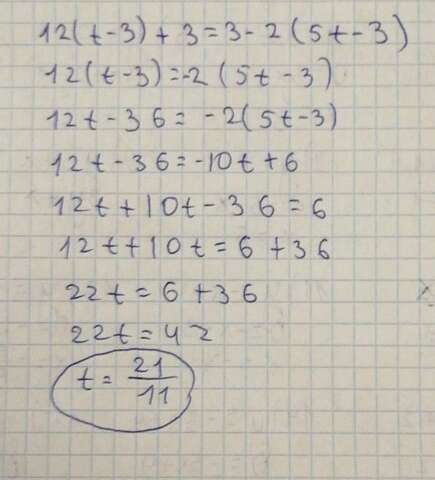 12(t-3)+3=3-2(5t-3)
12(t-3)=-2(5t-3)
12t-36=-2(5t-3)
12t-36=-10t+6
12t+10t-36=6
12t+10t=6+36
22t=6+36
22t=42
t=21/11